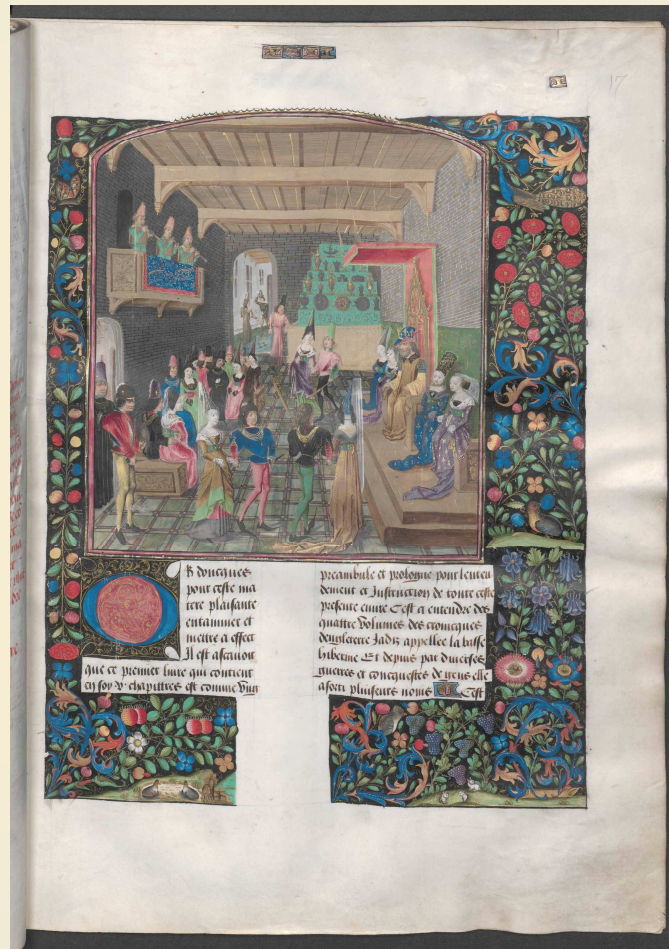 17
R doncques
pour ceste ma
tere plaisante
entammer et
mettre a effect
Il est ascauoir
que ce premier liure qui contient
en soy v chapittres est comme vng
preambule et prologue pour lenten
dement et Instruction de toute ceste
presente euure Cest a entendre des
quattre volumes des cronicques
dengleterre Jadis appellee la basse
hibernie Et depuis par diuerses
guerres et concquestes de gens elle
a sorti pluiseurs noms Cest